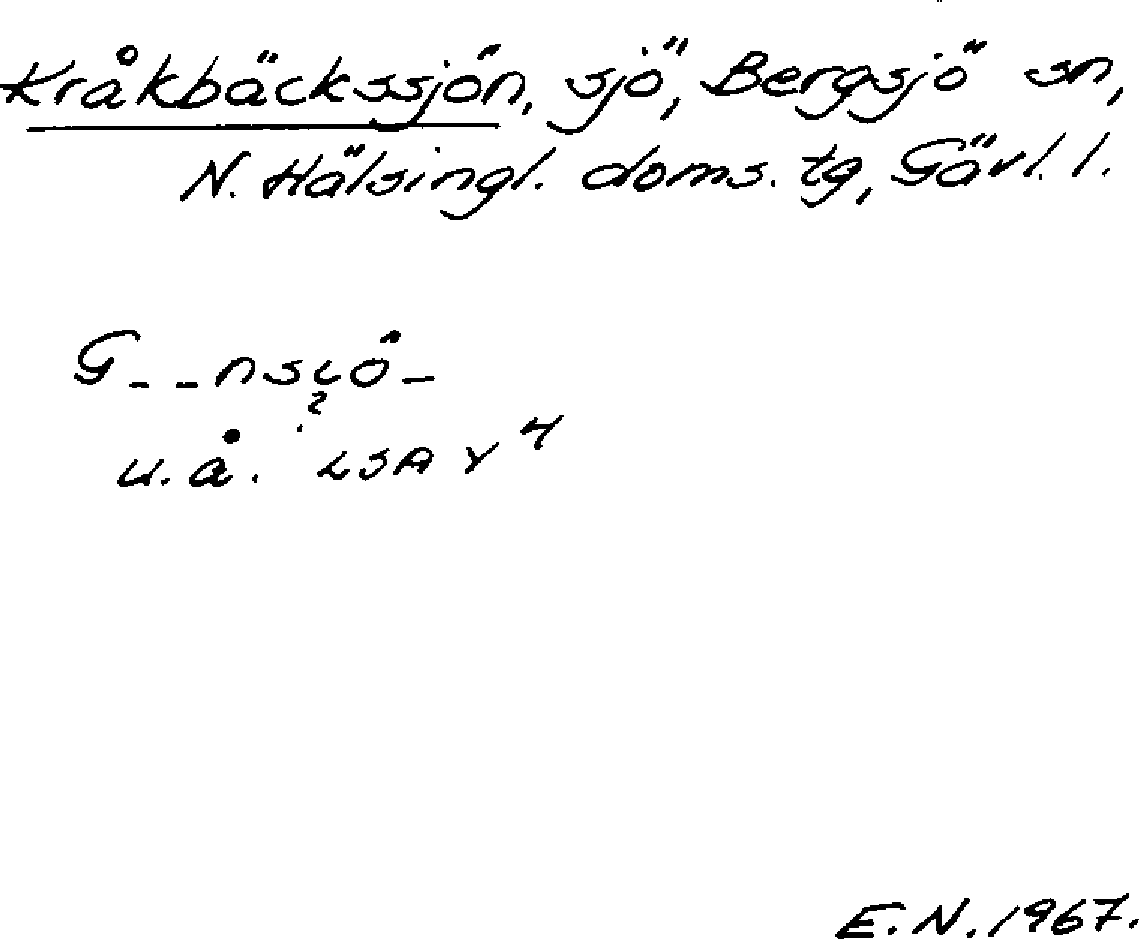 Kråkbäckssjön, sjö, Bergsjö sn,
N. Hälsingl. doms. tg, Gävl. l.
G_ _nsiö_
?
u.å. LSA Y 4
E.N. 1967.